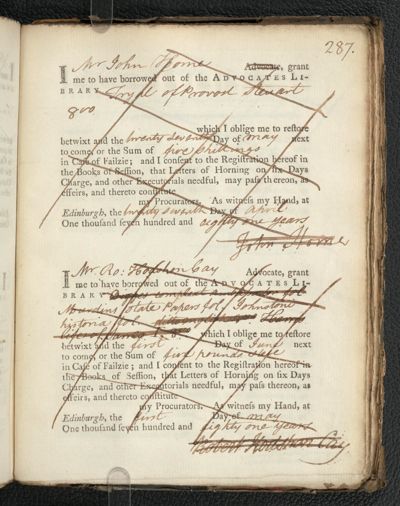 287.
I Mr John Horne Advocate, grant
me to have borrowed out of the ADVOCATES LI-
BRARY Tryal of Provost Steuart
8vo
which I oblige me to reſtore
betwixt and the twenty Seventh Day of May next
to come, or the Sum of five Shillings
in Caſe of Failzie; and I conſent to the Regiſtration hereof in
the Books of Seſſion, that Letters of Horning on ſix Days
Charge, and other Executorials needful, may paſs thereon, as
effeirs, and thereto conſtitute
my Procurators. As witneſs my Hand, at
Edinburgh, the twenty Seventh Day of April
One thouſand ſeven hundred and eighty one years
John Horne
I Mr. Ro: Hodshon Cay Advocate, grant
me to have borrowed out of the ADVOCATES LI-
BRARY
State Papers fol. Johnstone
historia fol.
which I oblige me to reſtore
betwixt and the first Day of June next
to come, or the Sum of five pounds
in Caſe of Failzie; and I conſent to the Regiſtration hereof in
the Books of Seſſion, that Letters of Horning on ſix Days
Charge, and other Executorials needful, may paſs thereon, as
effeirs, and thereto conſtitute
my Procurators. As witneſs my Hand, at
Edinburgh, the first Day of May
One thouſand ſeven hundred and eighty one years
Robert Hodshon Cay